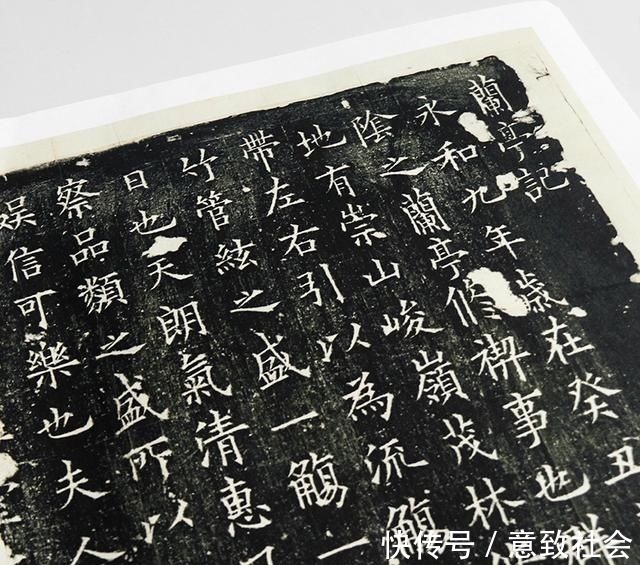 蘭亭記
永和九年歲在癸丑
陰之蘭亭脩禊事也
地有崇山峻嶺茂林
帶左右引以為流觴
竹管絃之盛一觴一
日也天朗氣清惠
察品類之盛所以
娛信可樂也夫人
快传号 / 意致社会